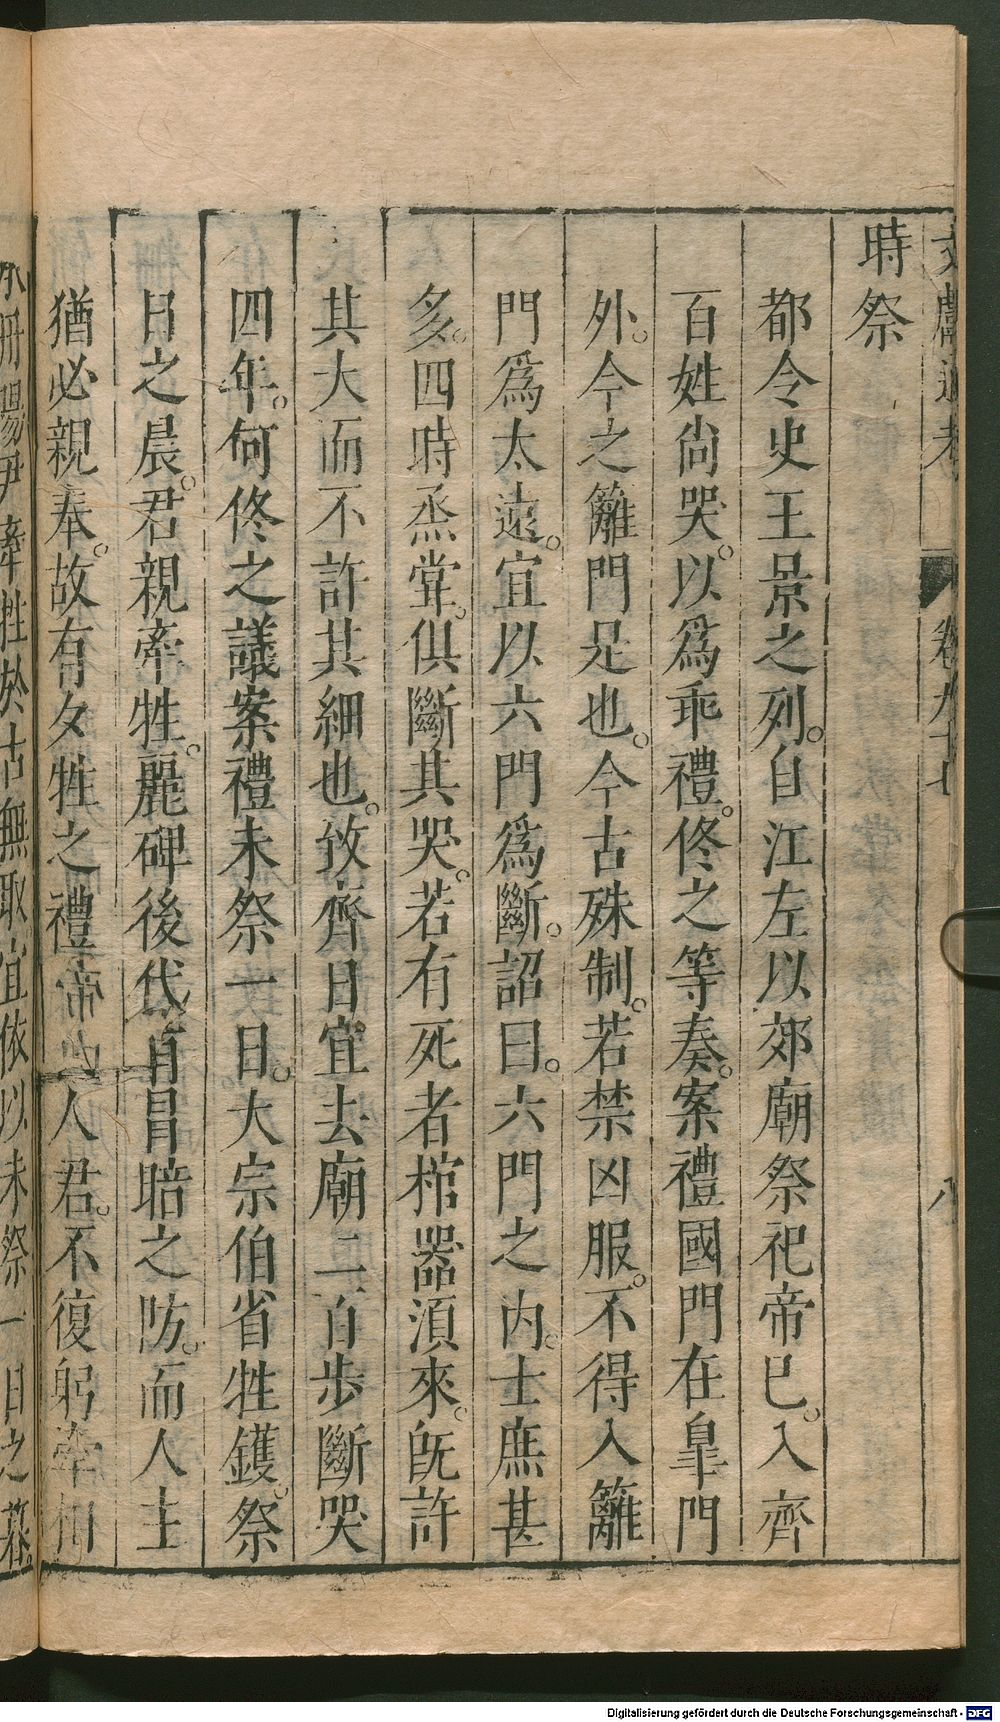 文獻通考 卷九十七 八
時祭
都令史王景之列。自江左以郊廟祭祀帝已。入齊
百姓尚哭。以爲乖禮。佟之等奏。案禮國門在皐門
外。今之籬門是也。今古殊制。若禁凶服。不得入籬
門爲太遠。宜以六門爲斷。詔曰。六門之内。士庶甚
多。四時烝嘗。俱斷其哭。若有死者棺器須來。旣許
其大而不許其細也。致齊日宜去廟二百步斷哭
四年。何佟之議案禮未祭一日。大宗伯省牲鑊。祭
日之晨。君親牽牲。麗碑後代有冒暗之防。而人主
猶必親奉。故有夕牲之禮。帝人君。不復躬牽相
牽牲於古無取。宜依以未祭一日之暮
Digitalisierung gefördert durch die Deutsche Forschungsgemeinschaft - DFG